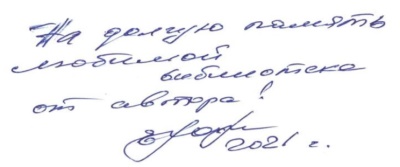 На долгую память
любимой
библиотеке
от автора!
2021 г.